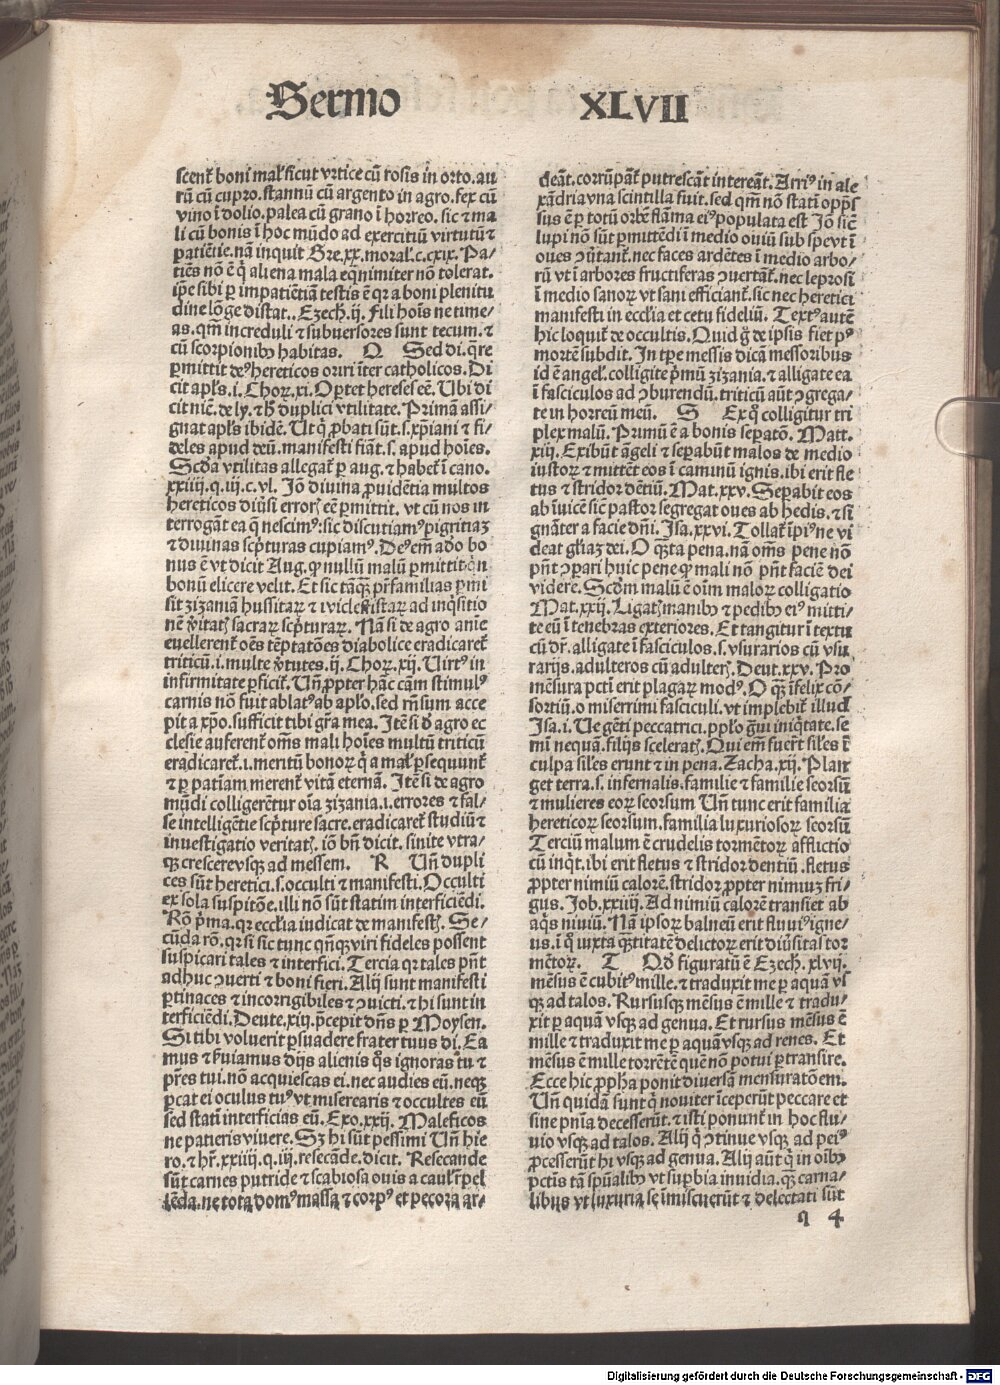 Sermo XLVII
scent᷑ boni mal᷑ sicut vrtice cū rosis in orto. au
rū cū cupro. stannū cū argento in agro. fex cū
vino ī dolio. palea cū grano ī horreo. sic ⁊ ma
li cū bonis ī hoc mūdo ad exercitiū virtutū ⁊
patiētie. nā inquit Gre. xx. moral᷑. c. cxix. Pa-
tiēs nō ē q̇ aliena mala eq̄nimiter nō tolerat.
ip̄e sibi ꝑ impatiētiā testis ē qꝛ a boni plenitu
dine lōge distat.. Ezech. ij. Fili hoīs ne time-
as. qm̄ increduli ⁊ subuersores sunt tecum. ⁊
cū scorpionibꝯ habitas. Q Sed di. q̄re
ꝑmittit deꝰ hereticos oriri īter catholicos. Di
cit apl̄s. i. Choꝝ. xi. Oꝑtet hereses eē. Ubi di
cit nic̄. de ly. ⁊ hꝫ duplici vtilitate. Primā assi-
gnat apl̄s ibidē. Ut q̇ ꝓbati sūt. s. xp̄iani ⁊ fi-
deles apud deū. manifesti fiāt. s. apud hoīes.
Scd̄a vtilitas allegat᷑ ꝑ aug. ⁊ habet᷑ ī cano.
xxiiij. q. iij. c. vl. Iō diuina ꝓuidētia multos
hereticos diūsi erroꝝ eē ꝑmittit. vt cū nos in
terrogāt ea q̄ nescimꝰ: sic discutiamꝰ pigritiaꝫ
⁊ diuinas scp̄turas cupiamꝰ. Deꝰ em̄ adeo bo
nus ē vt dicit Aug. ꝙ nullū malū ꝑmittit q̇n
bonū elicere velit. Et sic tāꝙ̄ pr̄familias ꝑmi
sit zizaniā hussitaꝝ ⁊ wiclefistaꝝ ad inq̇sitio
nē v̄itat᷑ sacraꝝ scp̄turaꝝ. Nā si de agro anīe
euellerent᷑ oēs tēptatōes diabolice eradicaret᷑
triticū. i. multe v̄tutes. ij. Choꝝ. xij. Uirtꝰ in
infirmitate ꝑficit᷑. Un̄ ꝓpter hāc cām stimulꝰ
carnis nō fuit ablatꝰ ab apl̄o. sed rn̄sum acce
pit a xp̄o. sufficit tibi gr̄a mea. Itē si ð agro ec
clesie auferent᷑ om̄s mali hoīes multū triticū
eradicaret᷑. i. meritū bonoꝝ q̇ a mal᷑ ꝑsequunt᷑
⁊ ꝑ patiam merent᷑ vitā eternā. Itē si de agro
mūdi colligerēt᷑ oīa zizania. i. errores ⁊ fal-
se intelligētie scp̄ture sacre. eradicaret᷑ studiū ⁊
inuestigatio veritat᷑. iō bn̄ dicit. sinite vtra-
qꝫ crescere vsqꝫ ad messem. R Un̄ dupli
ces sūt heretici. s. occulti ⁊ manifesti. Occulti
ex sola suspitōe. illi nō sūt statim interficiēdi.
Rō pͥma. qꝛ eccl̄ia iudicat de manifest᷑. Se-
cūda rō. qꝛ si sic tunc qn̄qꝫ viri fideles possent
suspicari tales ⁊ interfici. Tercia qꝛ tales pn̄t
adhuc ꝯuerti ⁊ boni fieri. Alij sunt manifesti
ꝑtinaces ⁊ incorrigibiles ⁊ ꝯuicti. ⁊ hi sunt in
terficiēdi. Deute. xiij. p̄cepit dn̄s ꝑ Moysen.
Si tibi voluerit ꝑsuadere frater tuus di. Ea
mus ⁊ ẜuiamus dijs alienis q̊s ignoras tu ⁊
pr̄es tui. nō acquiescas ei. nec audies eū. neqꝫ
ꝑcat ei oculus tuꝰ vt miserearis ⁊ occultes eū
sed statī interficias eū. Exo. xxij. Maleficos
ne patieris viuere. Sꝫ hi sūt pessimi Un̄ hie
ro. ⁊ hr̄. xxiiij. q. iij. resecāde. dicit. Resecande
sūt carnes putride ⁊ scabiosa ouis a caul᷑ rꝑel
lēda. ne tota domꝰ massa ⁊ corpꝰ et pecora ar-
deāt. corrūpāt᷑ putrescāt intereāt. Arriꝰ in ale
xādria vna scintilla fuit. sed qm̄ nō statī opp̄s
sus ē ꝑ totū orbē flāma eiꝰ populata est Iō sic̄
lupi nō sūt ꝑmittēdi ī medio ouiū sub spe vt ī
oues ꝯūtant᷑. nec faces ardētes ī medio arbo-
rū vt ī arbores fructiferas ꝯuertāt᷑. nec leprosi
ī medio sanoꝝ vt sani efficiant᷑. sic nec heretici
manifesti in eccl̄ia et cetu fideliū. Textꝰ autē
hic loquit᷑ de occultis. Quid g̊ de ipsis fiet pꝰ
mortē subdit. In tp̄e messis dicā messoribus
id ē angel᷑. colligite pͥmū zizania. ⁊ alligate ea
ī fasciculos ad ꝯburendū. triticū aūt ꝯgrega-
te in horreū meū. S Ex q̊ colligitur tri
plex malū. Primū ē a bonis seꝑatō. Matt.
xiij. Exibūt āgeli ⁊ seꝑabūt malos de medio
iustoꝝ ⁊ mittēt eos ī caminū ignis. ibi erit fle
tus ⁊ stridor dētiū. Mat. xxv. Seꝑabit eos
ab īuicē sic̄ pastor segregat oues ab hedis. ⁊ si
gnāter a facie dn̄i. Isa. xxvi. Tollat᷑ īpiꝰ ne vi
deat gl̄iaꝫ dei. O q̄sta pena. nā om̄s pene nō
pn̄t ꝯpari huic pene ꝙ mali nō pn̄t faciē dei
videre. Scd̄m malū ē oīm maloꝝ colligatio
Mat. xxij. Ligat᷑ manibꝯ ⁊ pedibꝯ eiꝰ mitti-
te eū ī tenebras exteriores. Et tangitur ī textu
cū dr̄. alligate ī fasciculos. s. vsurarios cū vsu
rarijs. adulteros cū adulter᷑. Deut. xxv. Pro
mēsura pcti erit plagaꝝ modꝰ. O q̄ꝫ īfelix cō-
sortiū. o miserrimi fasciculi. vt implebit᷑ illud
Isa. i. Ue gēti peccatrici. ppl̄o g̊ui iniq̇tate. se
mī nequā. filijs scelerat᷑. Qui em̄ fuer̄t sil̄es ī
culpa sil̄es erunt ⁊ in pena. Zacha. xij. Plan
get terra. s. infernalis. familie ⁊ familie seorsū
⁊ mulieres eoꝝ seorsum Un̄ tunc erit familia
hereticoꝝ seorsum. familia luxuriosoꝝ seorsū
Terciū malum ē crudelis tormētoꝝ afflictio
cū inq̇t. ibi erit fletus ⁊ stridor dentiū. fletus
ꝓpter nimiū calorē. stridor ꝓpter nimiuꝫ fri-
gus. Iob. xxiiij. Ad nimiū calorē transiet ab
aq̇s niuiū. Nā ipsoꝝ balneū erit fluuiꝰ igne-
us. ī q̊ iuxta q̄titatē delictoꝝ erit diūsitas tor
mētoꝝ. T Qð figuratū ē Ezech. xlvij.
mēsus ē cubitꝰ mille. ⁊ traduxit me ꝑ aquā vs
qꝫ ad talos. Rursusqꝫ mēsus ē mille ⁊ tradu-
xit ꝑ aquā vsqꝫ ad genua. Et rursus mēsus ē
mille ⁊ traduxit me ꝑ aquā vsqꝫ ad renes. Et
mēsus ē mille torrētē que nō potui ꝑtransire.
Ecce hic ꝓph̄a ponit diuersā mensuratōem.
Un̄ quidā sunt q̇ nouiter īceperūt peccare et
sine pn̄ia decesserūt. ⁊ isti ponunt᷑ in hoc flu-
uio vsqꝫ ad talos. Alij q̇ ꝯtinue vsqꝫ ad peiꝰ
ꝓcesserūt hi vsqꝫ ad genua. Alij aūt q̇ in oībꝯ
pctis tā spūalibꝯ vt suꝑbia inuidia. q̄ꝫ carna-
libus vt luxuria se īmiscuerūt ⁊ delectati sūt
q 4
Digitalisierung gefördert durch die Deutsche Forschungsgemeinschaft - DFG